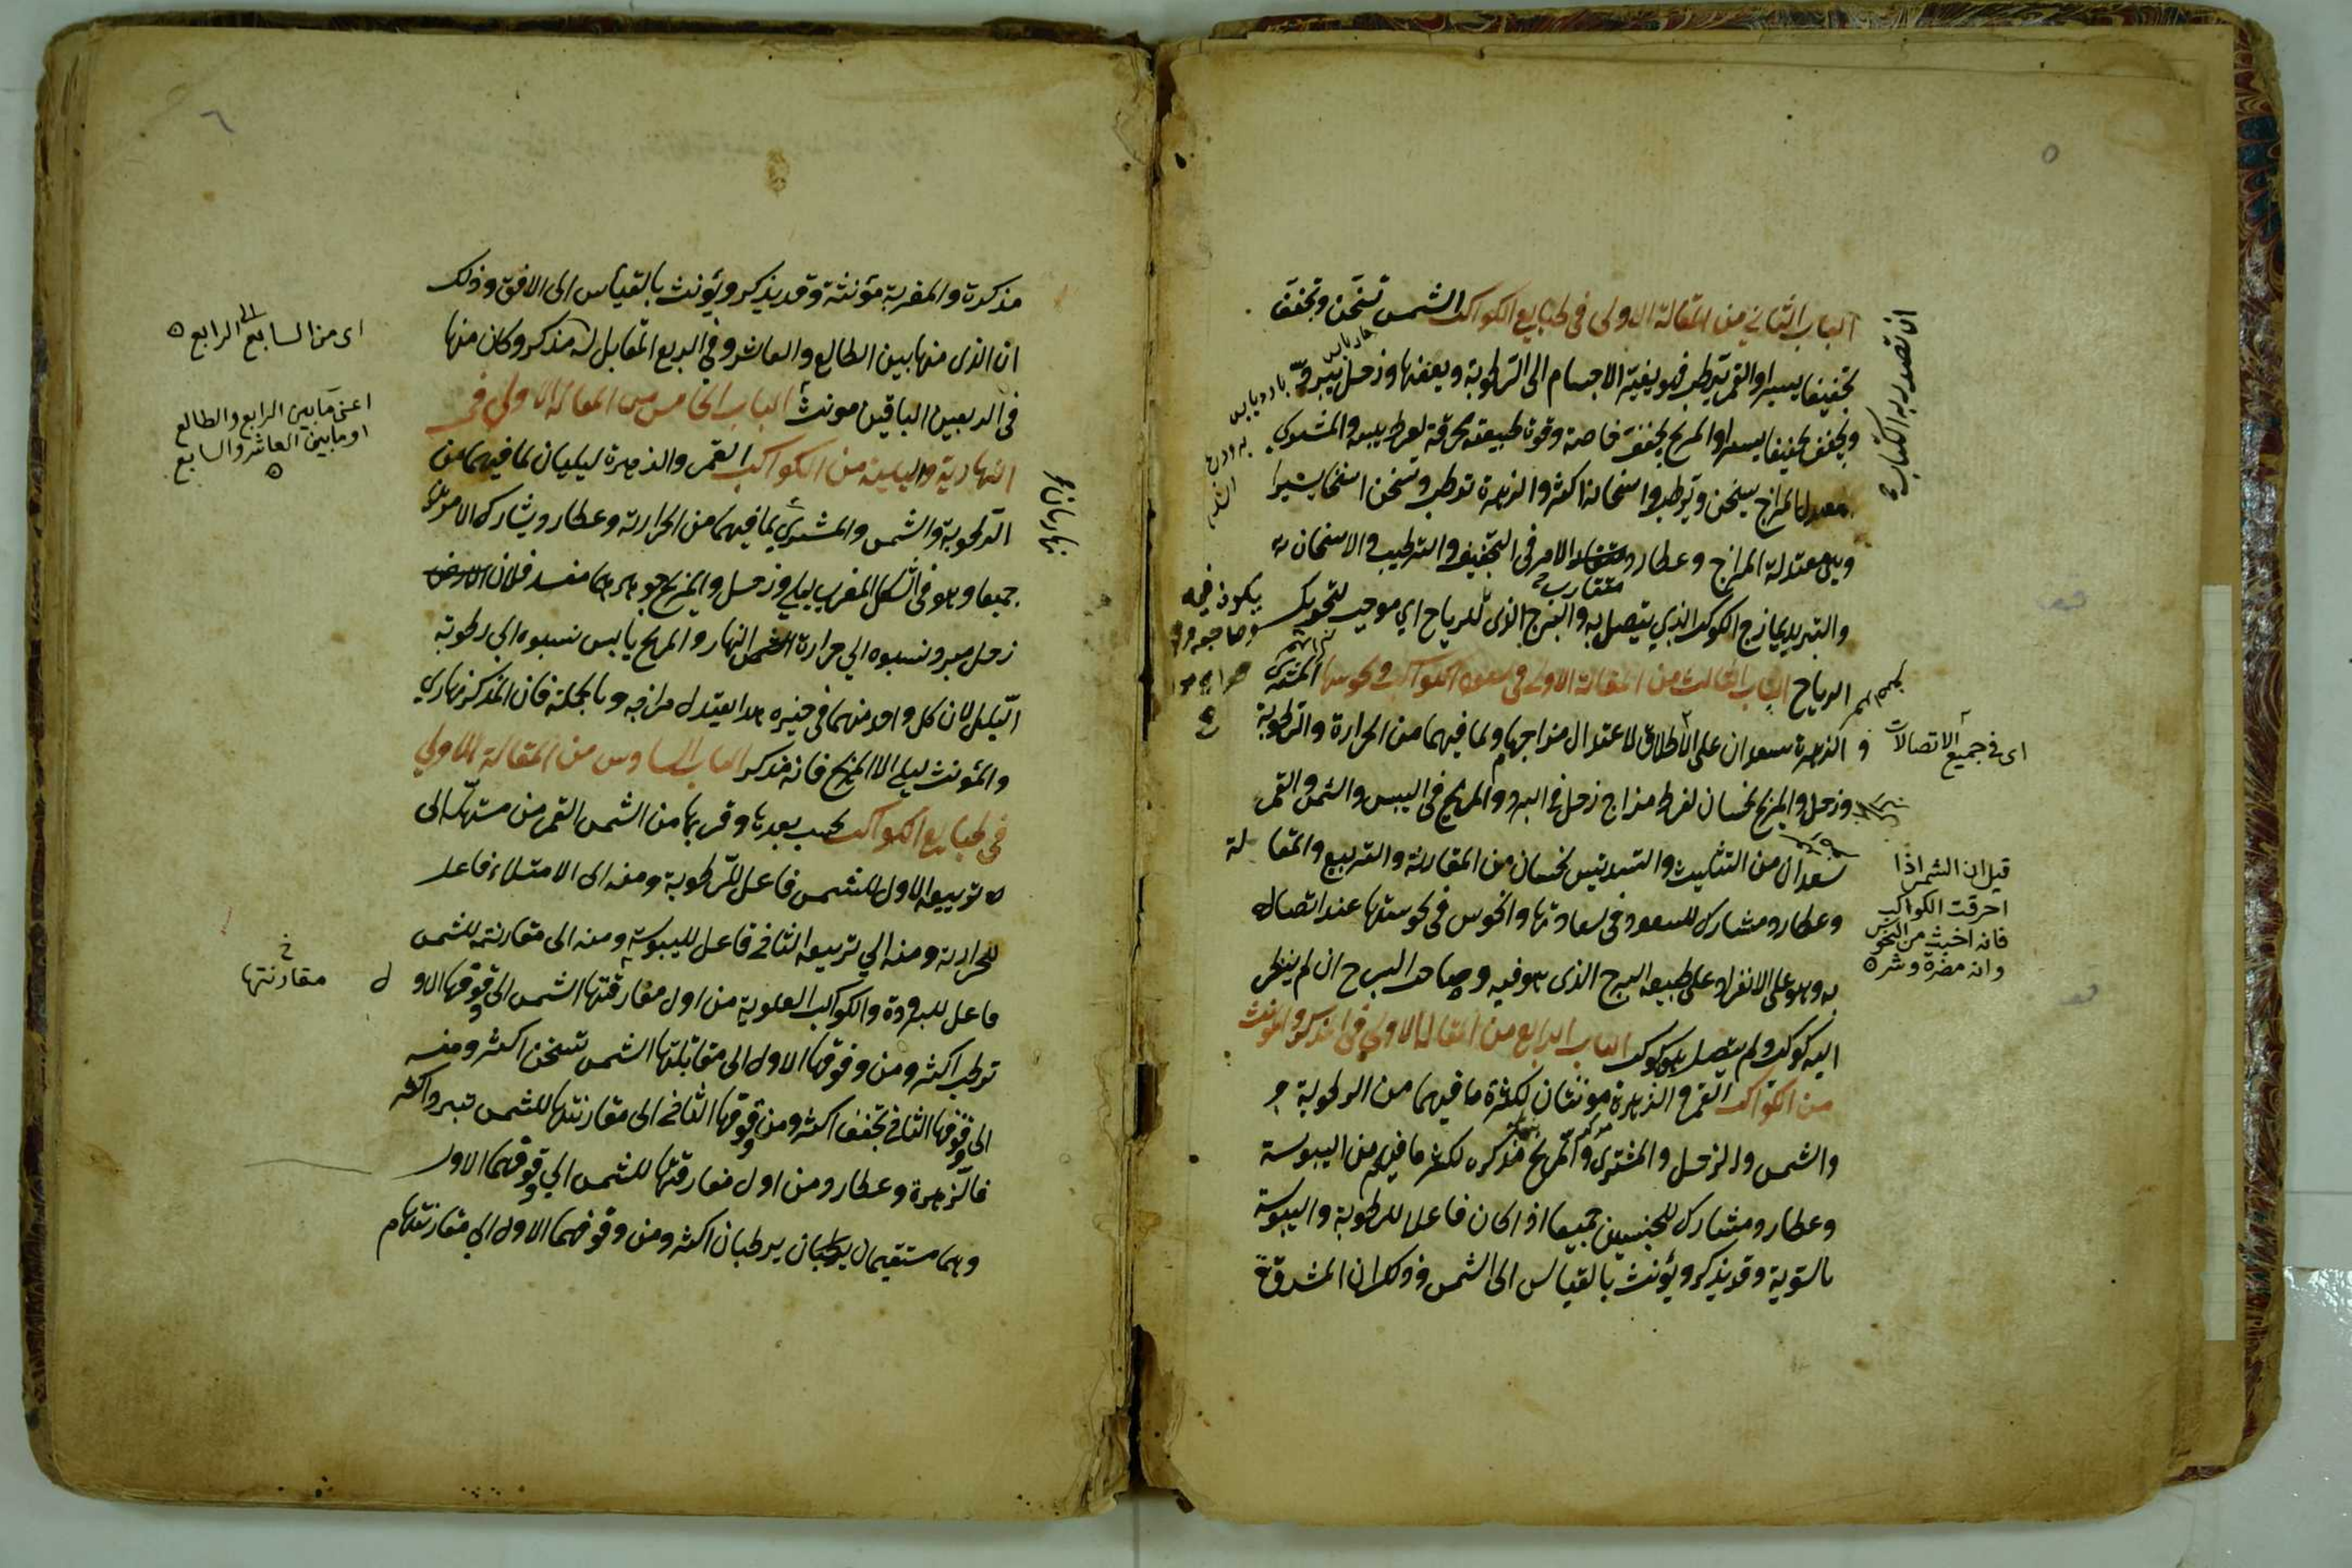 ٥
الباب الثاني من المقالة الاولى في طبايع الكواكب الشمس تسخن وتجفف
تجفيفا يسيرا والقمر يرطب فهو يغير الاجسام الى الرطوبة ويعفنها وزحل يبرد
ويجفف تجفيفا يسيرا والمريخ يجفف خاصة وقوة طبيعته محرقة لفرط يبسه والمشتري
معتدل المزاج يسخن ويرطب واسخانه اكثر والزهرة ترطب وتسخن اسخانا يسيرا
وهي معتدلة المزاج وعطارد متقارب الامر في التجفيف والترطيب والاسخان
والتبريد يمازج الكوكب الذي يتصل به والبرج الذي للرياح اي موجب لتحريك
الرياح الباب الثالث من المقالة الاولى في سعود الكواكب ونحوسها المشتري
و الزهرة سعدان على الاطلاق لاعتدال مزاجهما ولما فيهما من الحرارة والرطوبة
وزحل والمريخ نحسان لفرط مزاج زحل في البرد والمريخ في اليبس والشمس والقمر
سعدان من التثليث والتسديس نحسان من المقارنة والتربيع والمقابلة
وعطارد مشارك للسعود في سعادتها والنحوس في نحوستها عند اتصاله
به وهو على الانفراد على طبيعة البرج الذي هو فيه وصاحب البرج ان لم ينظر
اليه كوكب ولم يتصل بكوكب الباب الرابع من المقالة الاولي في المذكر والمونث
من الكواكب القمر والزهرة مونثان لكثرة ما فيهما من الرطوبة و
والشمس و زحل والمشترى والمريخ مذكره لكثرة ما فيهم من اليبوسة
وعطارد مشارك للجنسين جميعا اذا كان فاعلا للرطوبة واليبوسة
بالسوية وقد يذكر ويؤنث بالقياس الى الشمس وذلك ان المشرقة
ان تصدر به الكتاب
اى في جميع الاتصالات
قيل ان الشمس اذا
احرقت الكواكب
فانه اخبث من النحوس
وانه مضرة وشره
يكون فيه
وصاحبه
٦
مذكرة والمغربة مؤنثة وقد يذكر ويؤنث بالقياس الى الافق وذلك
ان الذى منها بين الطالع والعاشر وفي الربع المقابل له مذكر وكان منها
في الربعين الباقين مونث الباب الخامس من المقالة الاولي في
النهارية والليلية من الكواكب القمر والزهرة ليليان لما فيهما من
الرطوبة والشمس والمشتري لما فيهما من الحرارة وعطارد يشارك الامرين
جميعا وهو في الشكل المغرب ليلي وزحل والمريخ جوهرهما مفسد فلان الارض
زحل مبرد نسبوه الي حرارة الشمس النهار والمريخ يابس نسبوه الي رطوبة
الليل لان كل واحد منهما في حيزه هذا يعتدل مزاجه وبالجملة فان المذكر نهاري
والمؤنث ليلي الا المريخ فانه مذكر الباب السادس من المقالة الاولي
في طبايع الكواكب بحسب بعدها وقربها من الشمس القمر من مستهله الى
تربيعه الاول للشمس فاعل للرطوبة ومنه الى الامتلاء فاعل
للحرارة ومنه الي تربيعه الثاني فاعل لليبوسة ومنه الى مقارنته للشمس
فاعل للبرودة والكواكب العلوية من اول مفارقتها الشمس الى وقوفها الاول
ترطب اكثر ومن وقوفها الاول الى مقابلتها الشمس تسخن اكثر ومنه
الى وقوفها الثاني تجفف اكثر ومن وقوفها الثاني الى مقارنتها للشمس تبرد اكثر
فالزهرة وعطارد من اول مفارقتها للشمس الي وقوفهما الاول
وهما مستقيمان يرطبان اكثر ومن وقوفهما الاول الي مقارنتهما
اى من السابع الى الرابع
اعني ما بين الرابع والطالع
او ما بين العاشر والسابع
نهاريان
خ
مقارنتها